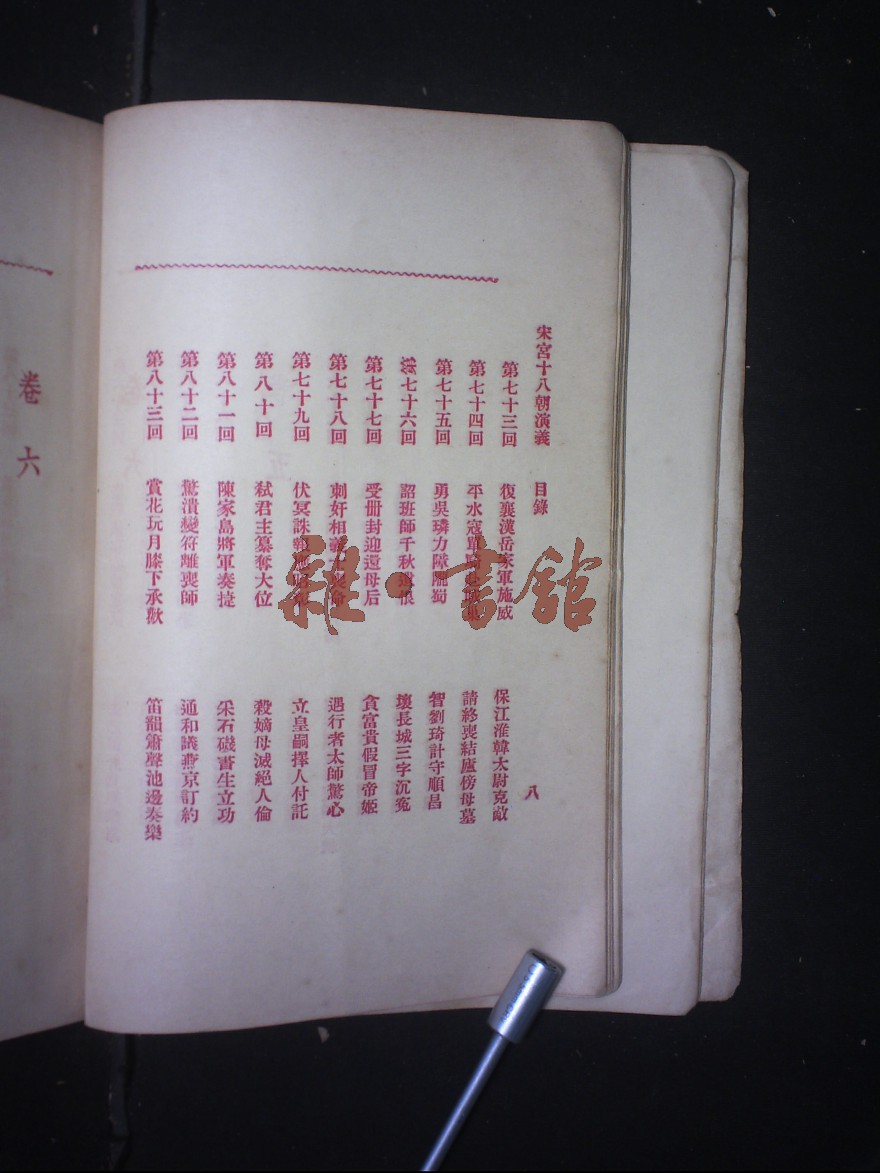 宋宮十八朝演義 目錄 八
第七十三回 復襄漢岳家軍施威 保江淮韓太尉克敵
第七十四回 平水寇單 請終喪結廬傍母墓
第七十五回 勇吳璘力障隴蜀 智劉琦計守順昌
第七十六回 詔班師千秋遺恨 壞長城三字沉冤
第七十七回 受册封迎還母后 貪富貴假冒帝姬
第七十八回 刺奸相義士喪命 遇行者太師驚心
第七十九回 伏冥誅 立皇嗣擇人付託
第八十回 弒君主纂奪大位 殺嫡母滅絕人倫
第八十一回 陳家島將軍奏捷 采石磯書生立功
第八十二回 驚潰變符離喪師 通和議燕京訂約
第八十三回 賞花玩月膝下承歡 笛韻簫聲池邊奏樂
卷六
雜·書館